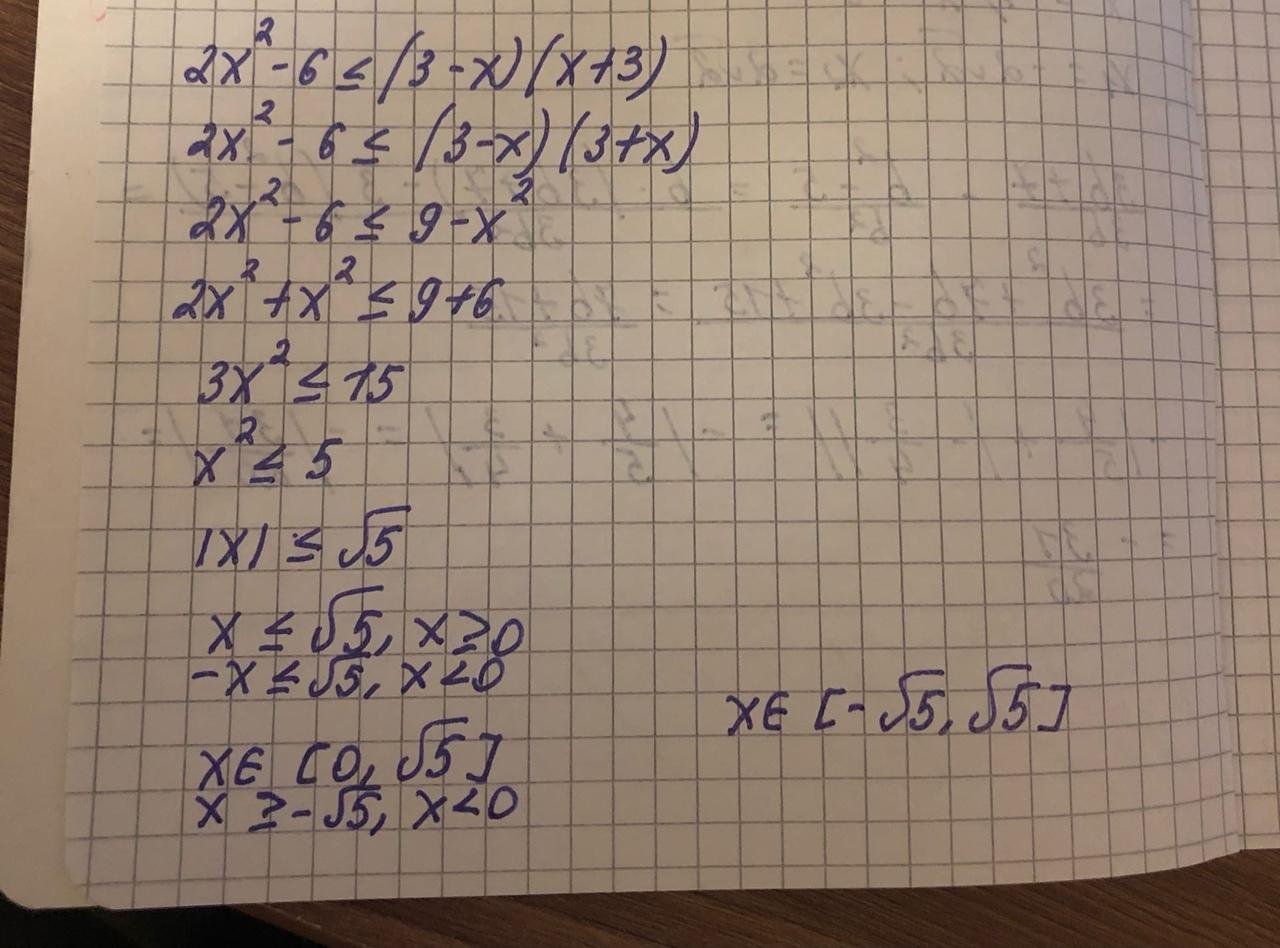 2x² - 6 ≤ (3 - x)(x + 3)
2x² - 6 ≤ (3 - x)(3 + x)
2x² - 6 ≤ 9 - x²
2x² + x² ≤ 9 + 6
3x² ≤ 15
x² ≤ 5
|x| ≤ √5
x ≤ √5, x ≥ 0
-x ≤ √5, x < 0
x ∈ [0, √5]
x ≥ -√5, x < 0
x ∈ [-√5, √5]